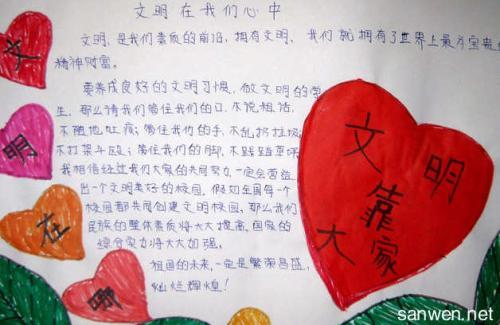 文明在我们心中
文明,是我们素质的前沿,拥有文明,我们就拥有了世界上最为宝贵的
精神财富。
要养成良好的文明习惯,做文明的学
生,那么请我们管住我们的口,不说粗话,
不随地吐痰;管住我们的手,不乱扔垃圾,
不打架斗殴;管住我们的脚,不践踏草坪
我相信经过我们大家的共同努力,一定会营造
出一个文明美好的校园,假如全国每一个
校园都共同创建文明校园,那么我们
民族的整体素质将大大提高,国家的
综合实力将大大加强。
祖国的未来,一定是繁荣昌盛,
灿烂辉煌!
文
明
在
哪
文明
靠
大家
sanwen.net